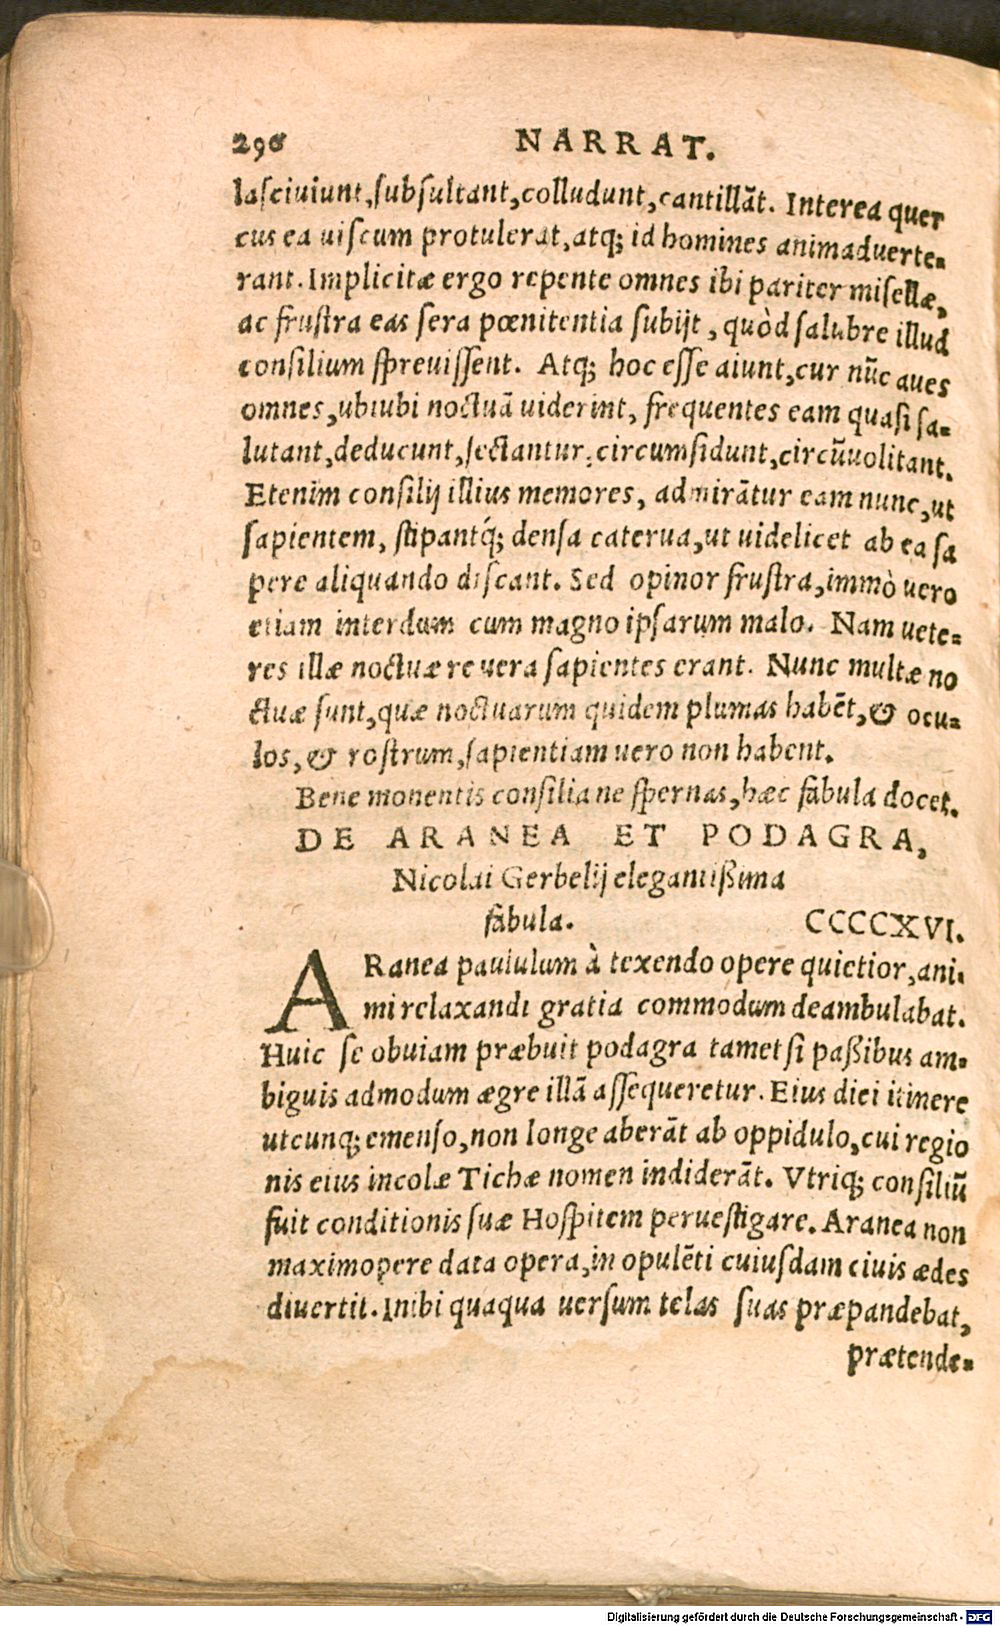 296 NARRAT.
lasciuiunt, subsultant, colludunt, cantillāt. Interea quer
cus ea uiscum protulerat, atq; id homines animaduerte-
rant. Implicitæ ergo repente omnes ibi pariter misellæ,
ac frustra eas sera pœnitentia subijt, quòd salubre illud
consilium spreuissent. Atq; hoc esse aiunt, cur nūc aues
omnes, ubiubi noctuā uiderint, frequentes eam quasi sa-
lutant, deducunt, sectantur, circumsidunt, circūuolitant.
Etenim consilij illius memores, admirātur eam nunc, ut
sapientem, stipantq́; densa caterua, ut uidelicet ab ea sa
pere aliquando discant. Sed opinor frustra, immò uero
etiam interdum cum magno ipsarum malo. Nam uete-
res illæ noctuæ re uera sapientes erant. Nunc multæ no
ctuæ sunt, quæ noctuarum quidem plumas habēt, & ocu-
los, & rostrum, sapientiam uero non habent.
Bene monentis consilia ne spernas, hæc fabula docet.
DE ARANEA ET PODAGRA,
Nicolai Gerbelij elegantißima
fabula. CCCCXVI.
ARanea paululum à texendo opere quietior, ani-
mi relaxandi gratia commodum deambulabat.
Huic se obuiam præbuit podagra tametsi paßibus am-
biguis admodum ægre illā assequeretur. Eius diei itinere
utcunq; emenso, non longe aberāt ab oppidulo, cui regio
nis eius incolæ Tichæ nomen indiderāt. Vtriq; consiliū
fuit conditionis suæ Hospitem peruestigare. Aranea non
maximopere data opera, in opulēti cuiusdam ciuis ædes
diuertit. Inibi quaqua uersum telas suas præpandebat,
prætende-
Digitalisierung gefördert durch die Deutsche Forschungsgemeinschaft - DFG